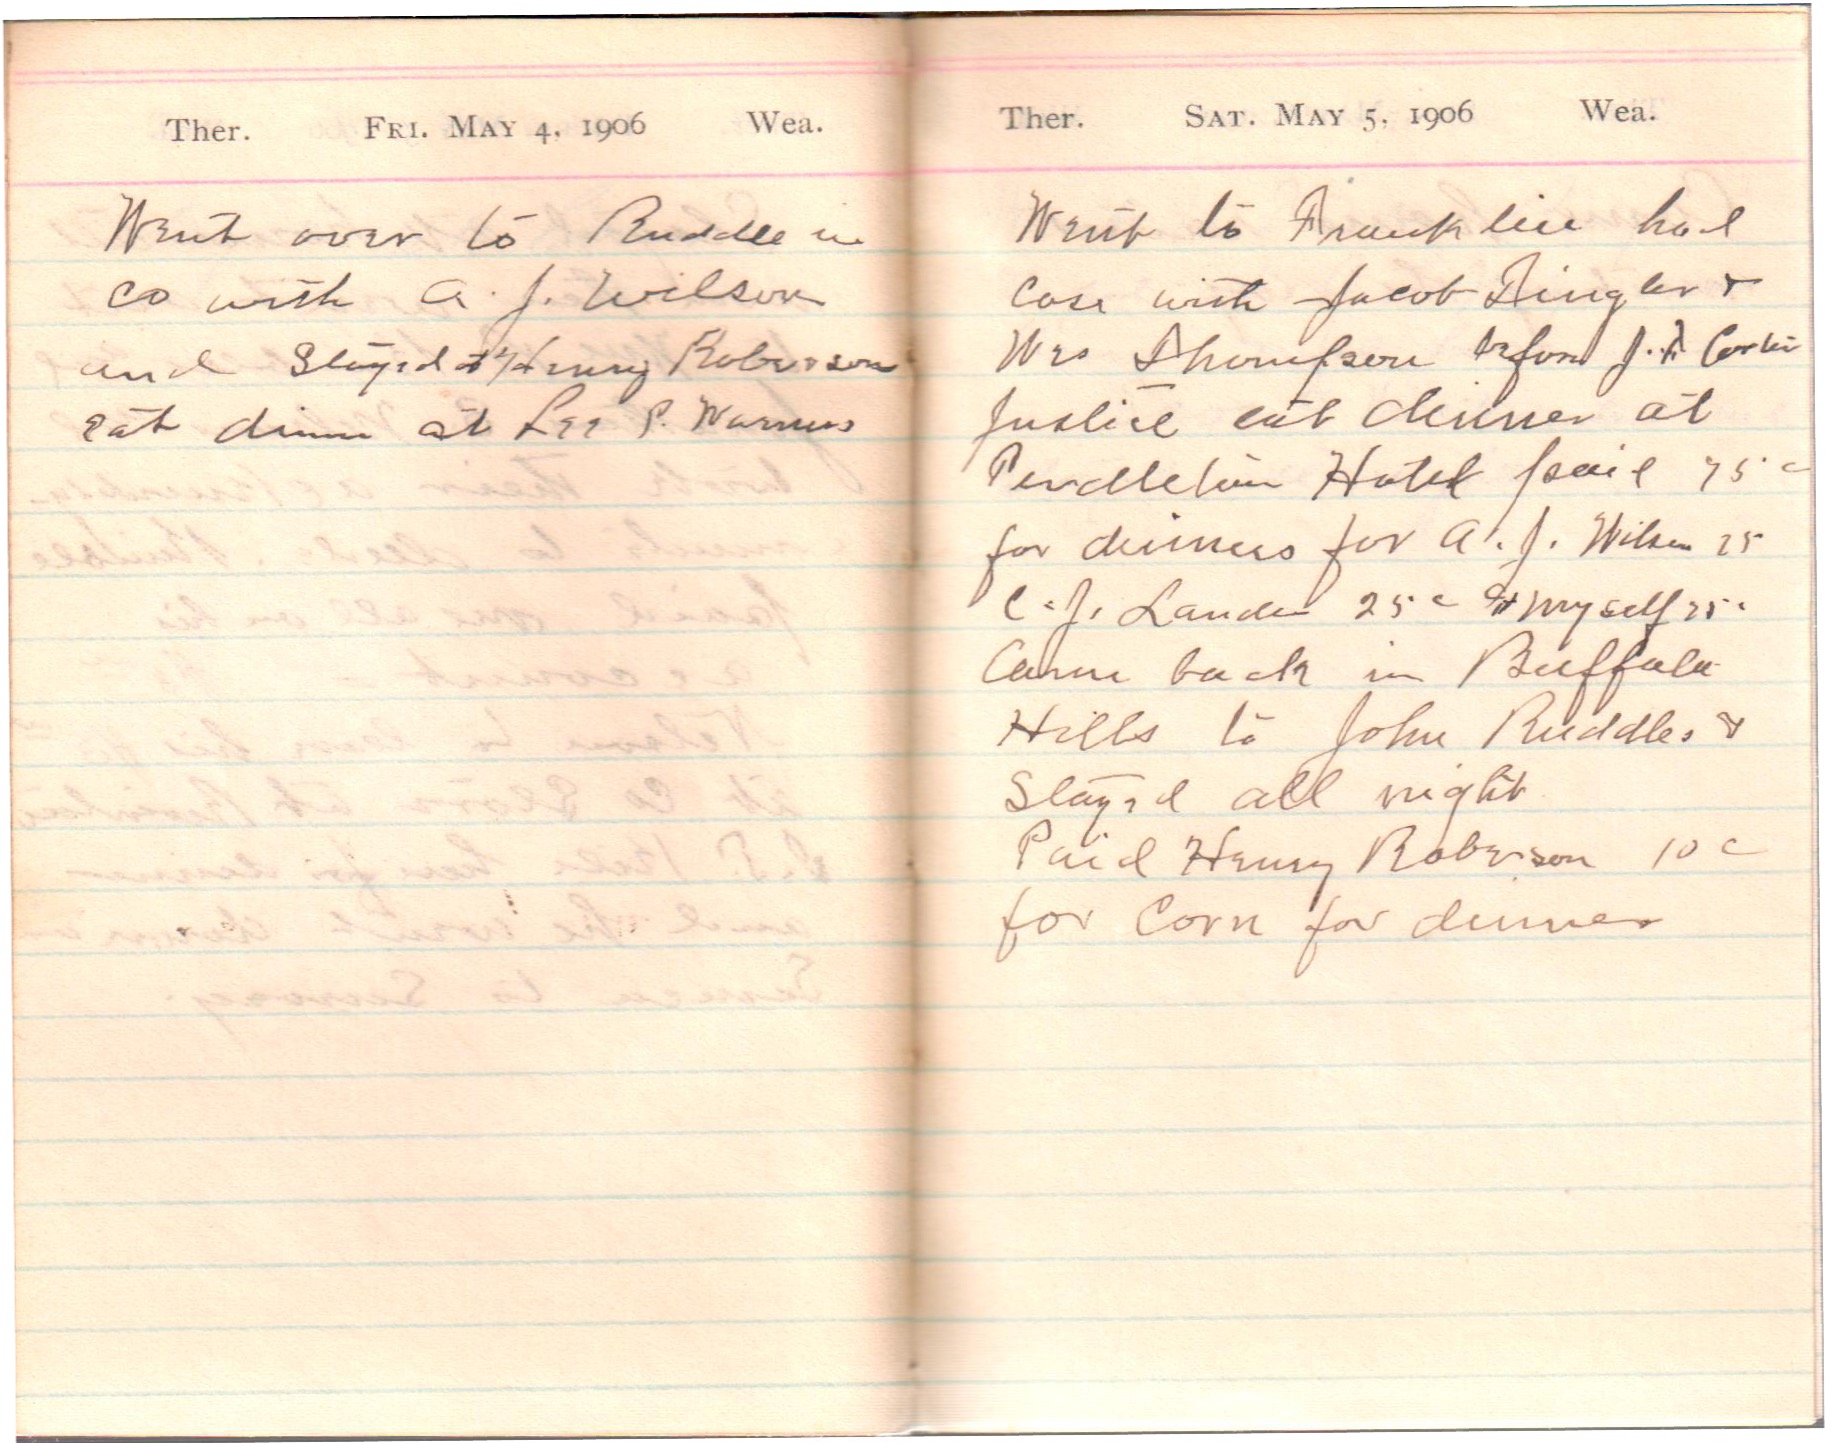 Ther. FRI. MAY 4, 1906 Wea.
Went over to Ruddle in
co with A. J. Wilson
and Stayed at Henry Roberson
eat dinner at Lee P. Warners
Ther. SAT. MAY 5, 1906 Wea.
Went to Franklin had
case with Jacob &
Thompson before J. F.
Justice eat dinner at
Pendleton Hotel paid 75 c
for dinners for A. J. Wilson 25
C. J. 25 c myself 25 c
Came back in Buffalo
Hills to John Ruddles &
Stayed all night
Paid Henry Roberson 10 c
for Corn for dinner